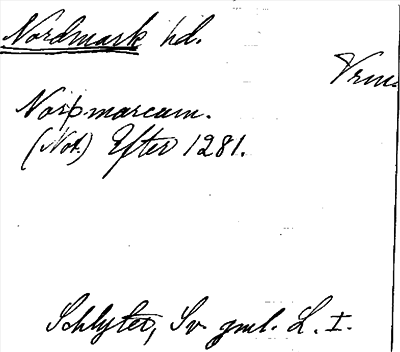 Nordmark hd.
Vrm.
Norþmarcum.
(Not.) Efter 1281.
Schlyter, Sv. gml. L. I.